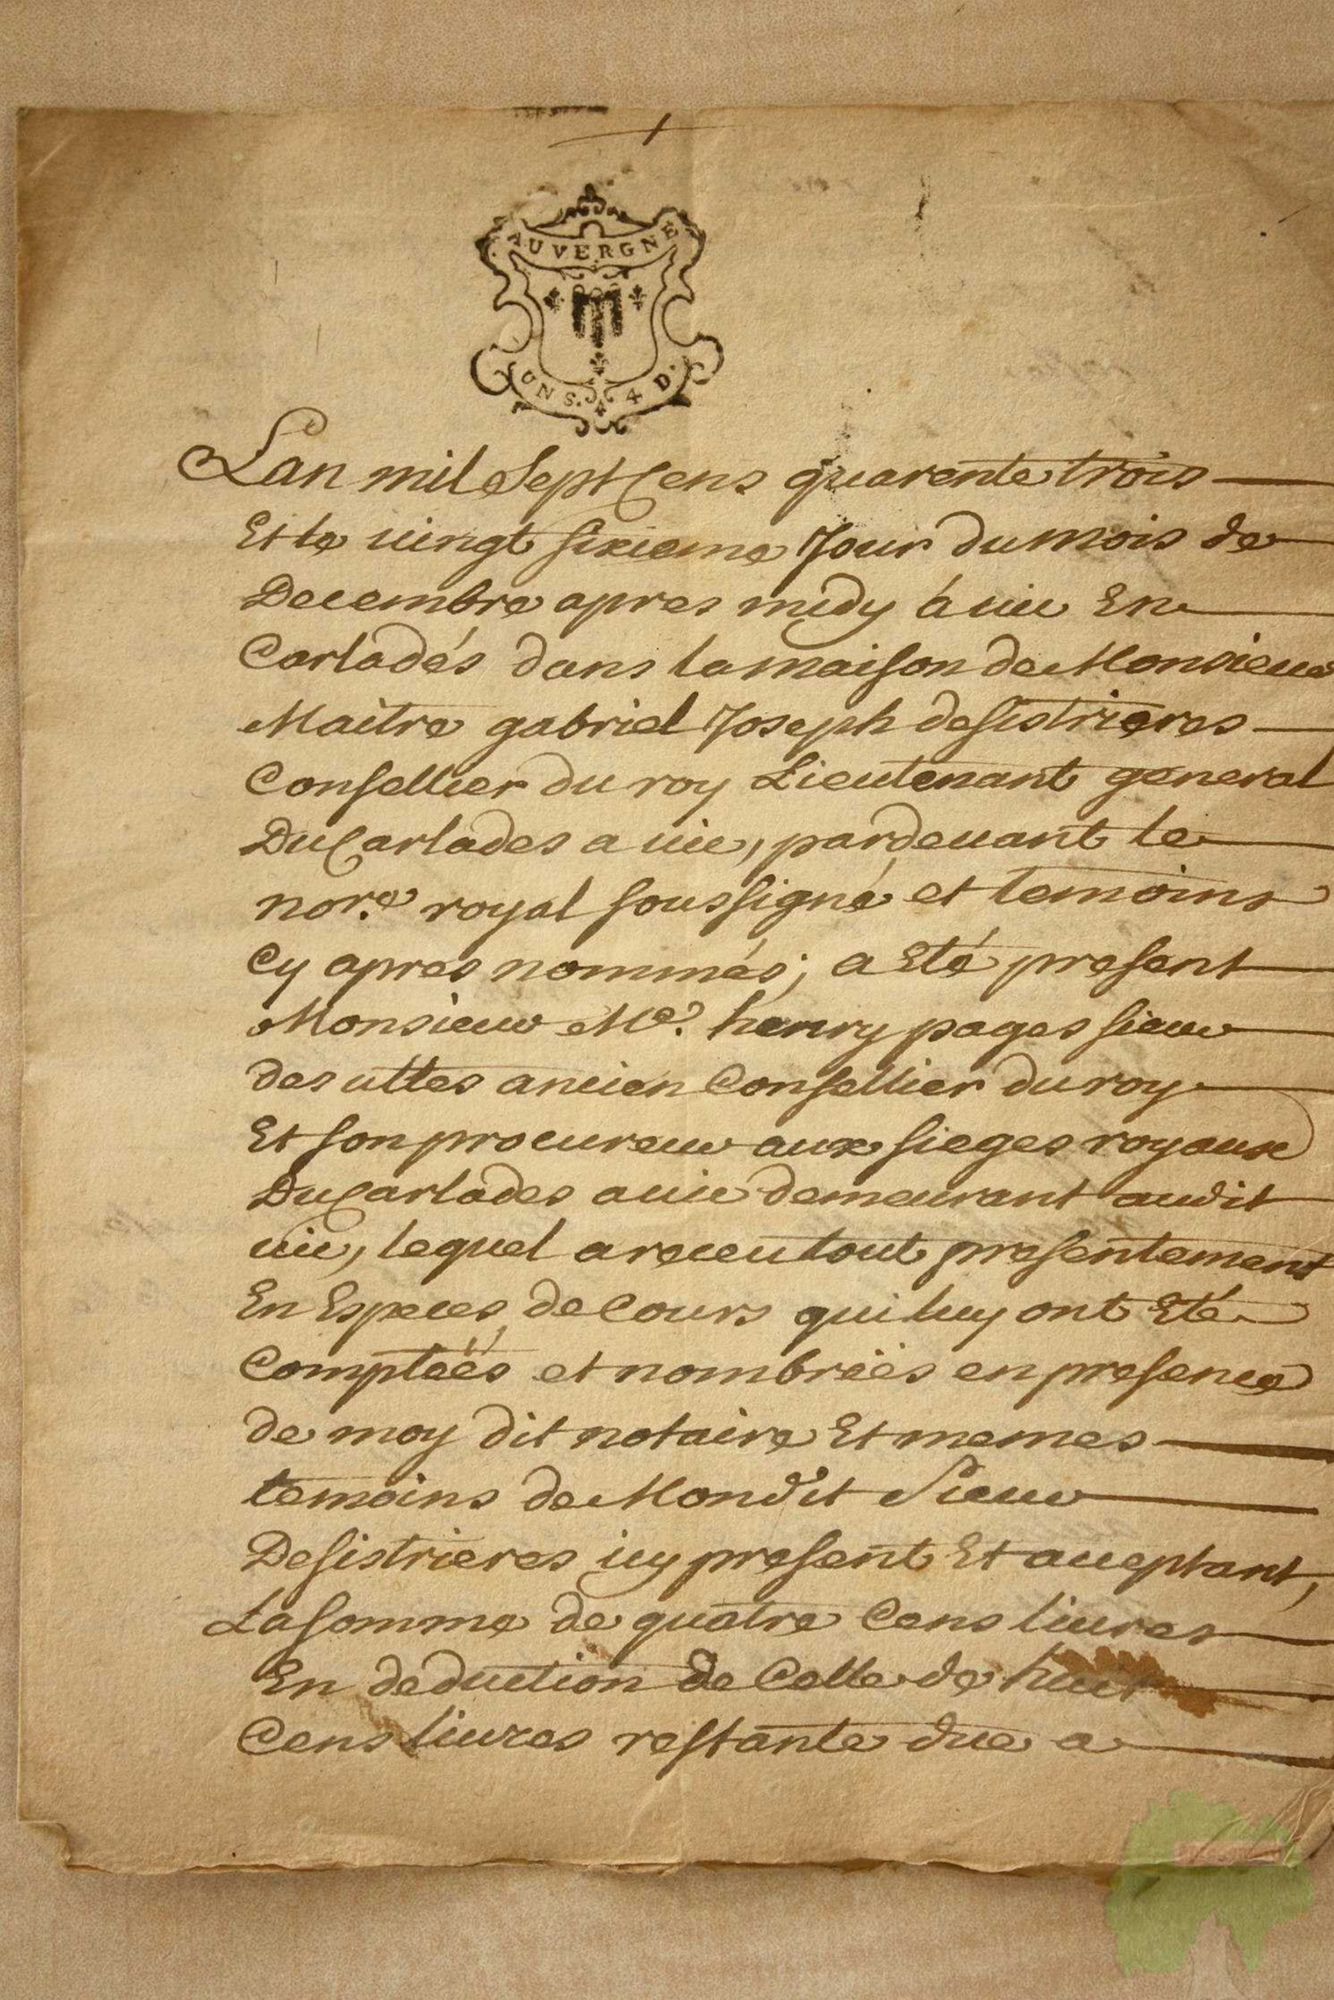 AUVERGNE
UN S. 4 D.
Lan mil Sept Cens quarente trois
Et le vingt sixieme Jour du mois de
Decembre apres midy á vic En
Carladés dans la maison de Monsieur
Maitre gabriel Joseph desistrieres
Consellier du roy Lieutenant general
Du Carlades a vic, pardevant le
nore. royal soussigné et temoins
Cy apres nommés; a Eté present
Monsieur Me. henry pages sieur
des uttes ancien Consellier du roy
Et son procureur aux sieges royaux
Du Carlades a vic demeurant audit
vic, lequel a receu tout presentement
En Especes de Cours qui luy ont Eté
Comptéés et nombréés en presence
de moy dit notaire Et memes
temoins de Mondit Sieur
Desistrieres icy present Et acceptant,
La somme de quatre Cens livres
En deduction de Celle de huit
Cens livres restante due a